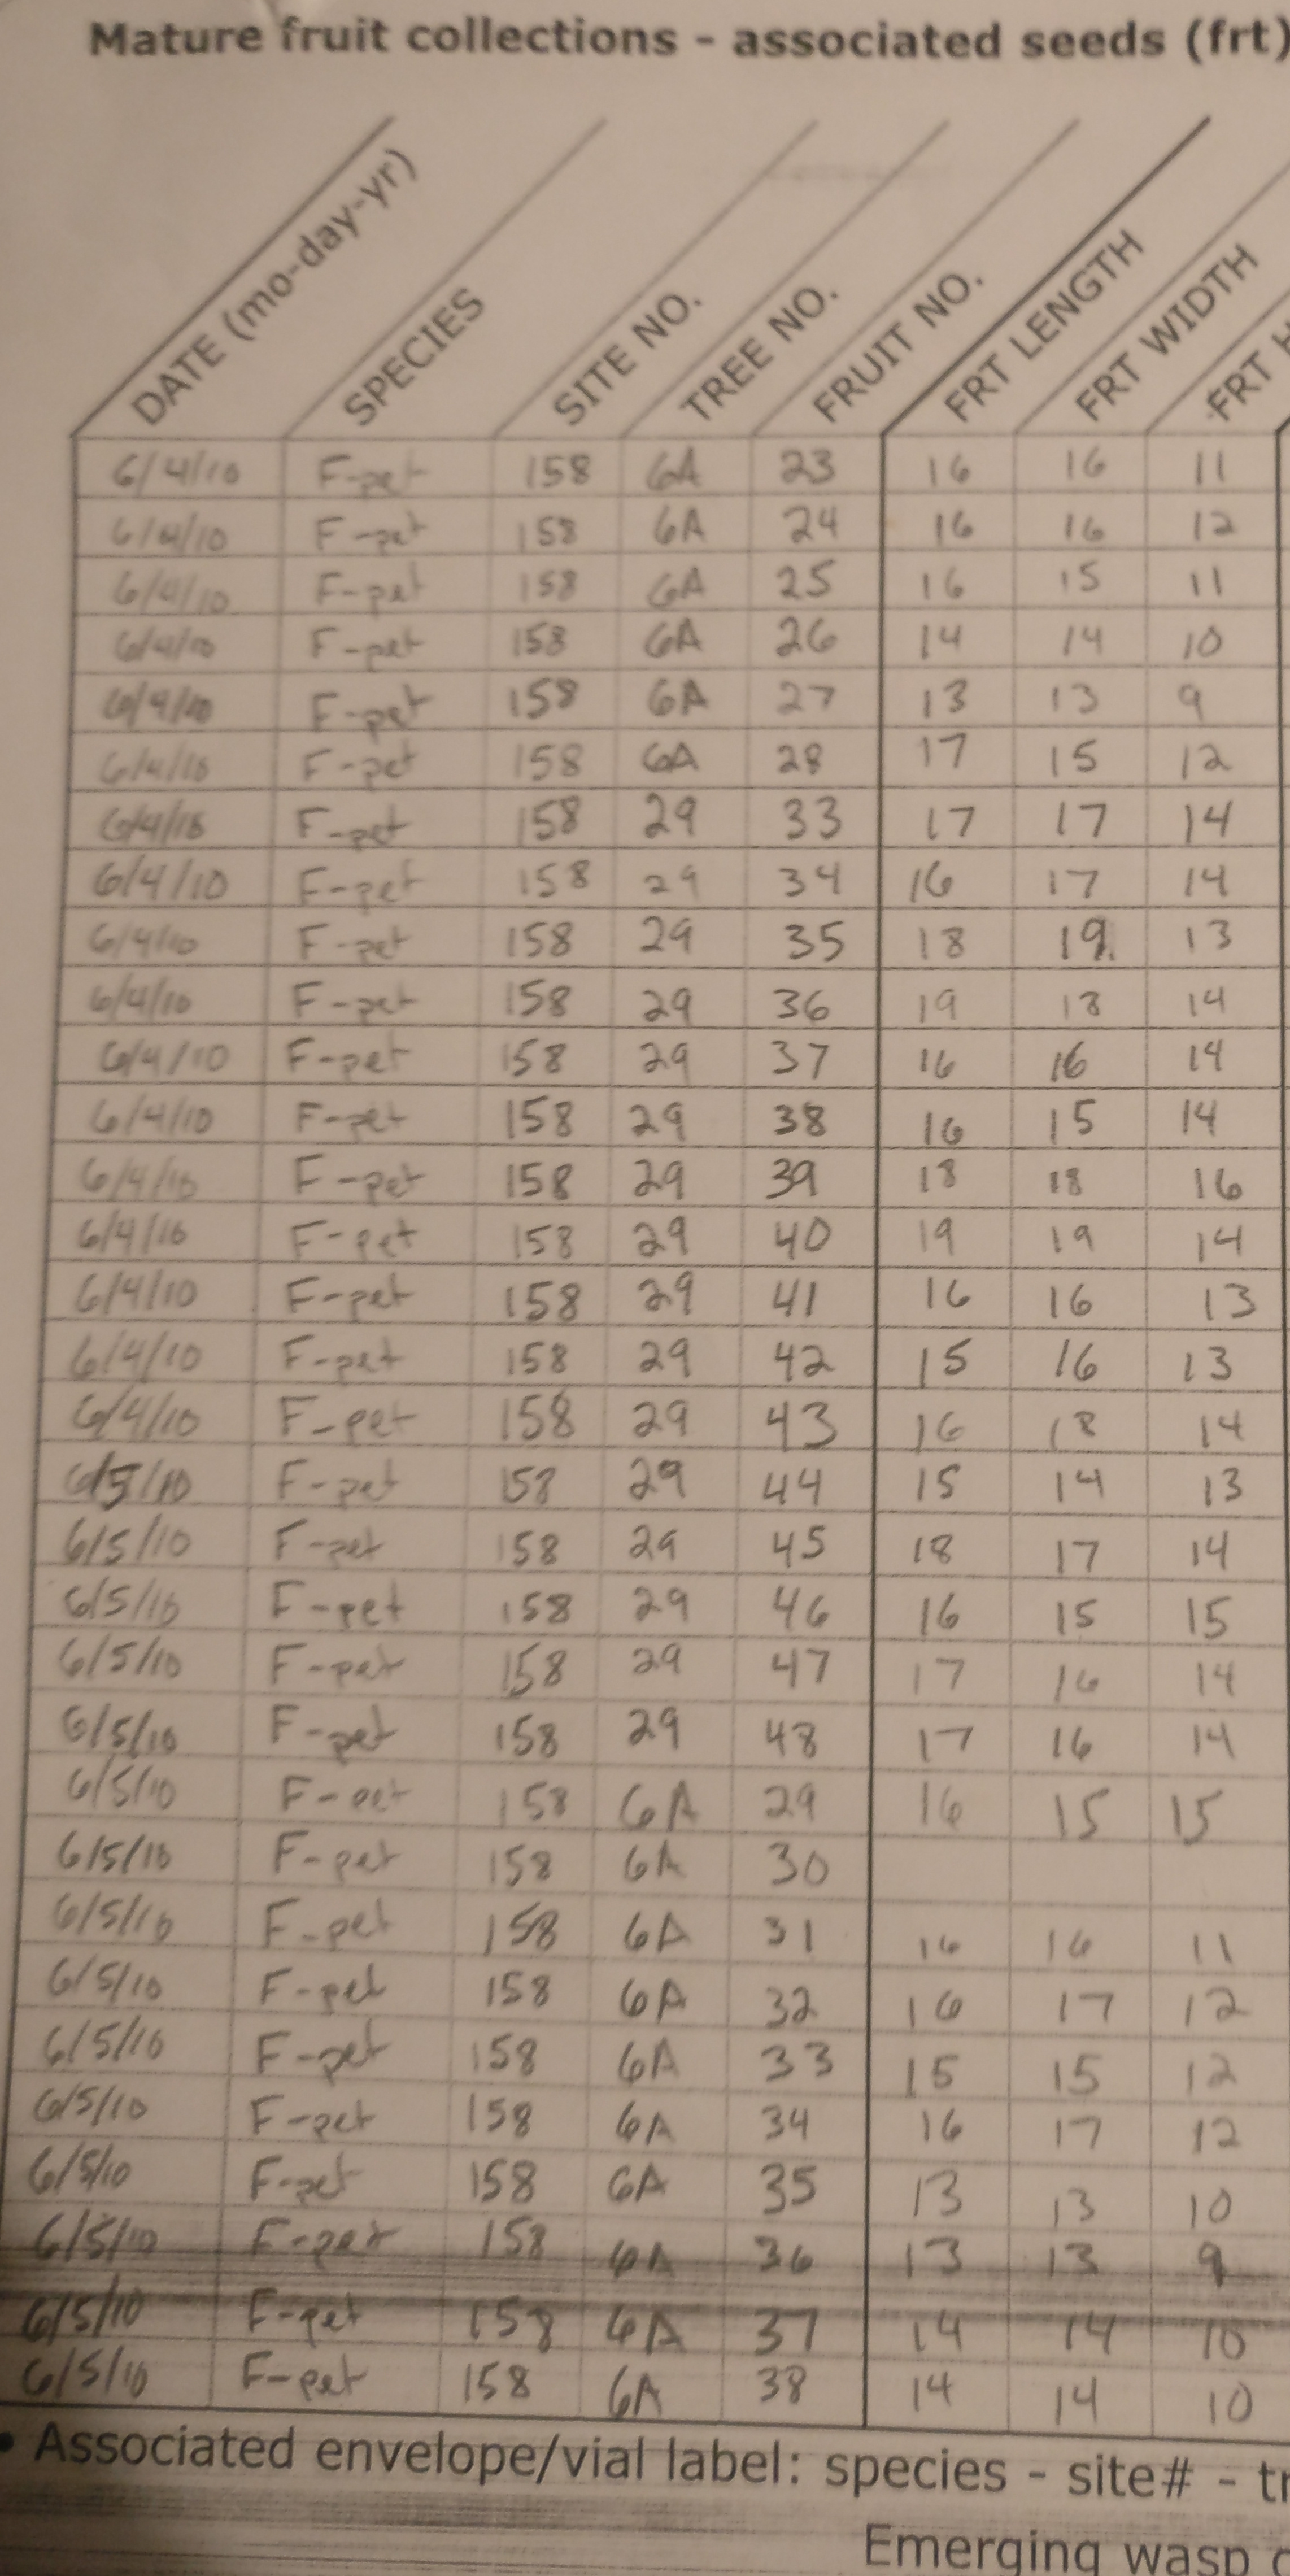 Mature fruit collections - associated seeds (frt)
DATE (mo-day-yr) SPECIES SITE NO. TREE NO. FRUIT NO. FRT LENGTH FRT WIDTH FRT H
6/4/10 F-pet 158 6A 23 16 16 11
6/4/10 F-pet 158 6A 24 16 16 12
6/4/10 F-pet 158 6A 25 16 15 11
6/4/10 F-pet 158 6A 26 14 14 10
6/4/10 F-pet 158 6A 27 13 13 9
6/4/10 F-pet 158 6A 28 17 15 12
6/4/10 F-pet 158 29 33 17 17 14
6/4/10 F-pet 158 29 34 16 17 14
6/4/10 F-pet 158 29 35 18 19 13
6/4/10 F-pet 158 29 36 19 18 14
6/4/10 F-pet 158 29 37 16 16 14
6/4/10 F-pet 158 29 38 16 15 14
6/4/10 F-pet 158 29 39 18 18 16
6/4/10 F-pet 158 29 40 19 19 14
6/4/10 F-pet 158 29 41 16 16 13
6/4/10 F-pet 158 29 42 15 16 13
6/4/10 F-pet 158 29 43 16 18 14
6/5/10 F-pet 158 29 44 15 14 13
6/5/10 F-pet 158 29 45 18 17 14
6/5/10 F-pet 158 29 46 16 15 15
6/5/10 F-pet 158 29 47 17 16 14
6/5/10 F-pet 158 29 48 17 16 14
6/5/10 F-pet 158 6A 29 16 15 15
6/5/10 F-pet 158 6A 30
6/5/10 F-pet 158 6A 31 16 16 11
6/5/10 F-pet 158 6A 32 16 17 12
6/5/10 F-pet 158 6A 33 15 15 12
6/5/10 F-pet 158 6A 34 16 17 12
6/5/10 F-pet 158 6A 35 13 13 10
6/5/10 F-pet 158 6A 36 13 13 9
6/5/10 F-pet 158 6A 37 14 14 10
6/5/10 F-pet 158 6A 38 14 14 10
• Associated envelope/vial label: species - site# - tr
Emerging wasp c